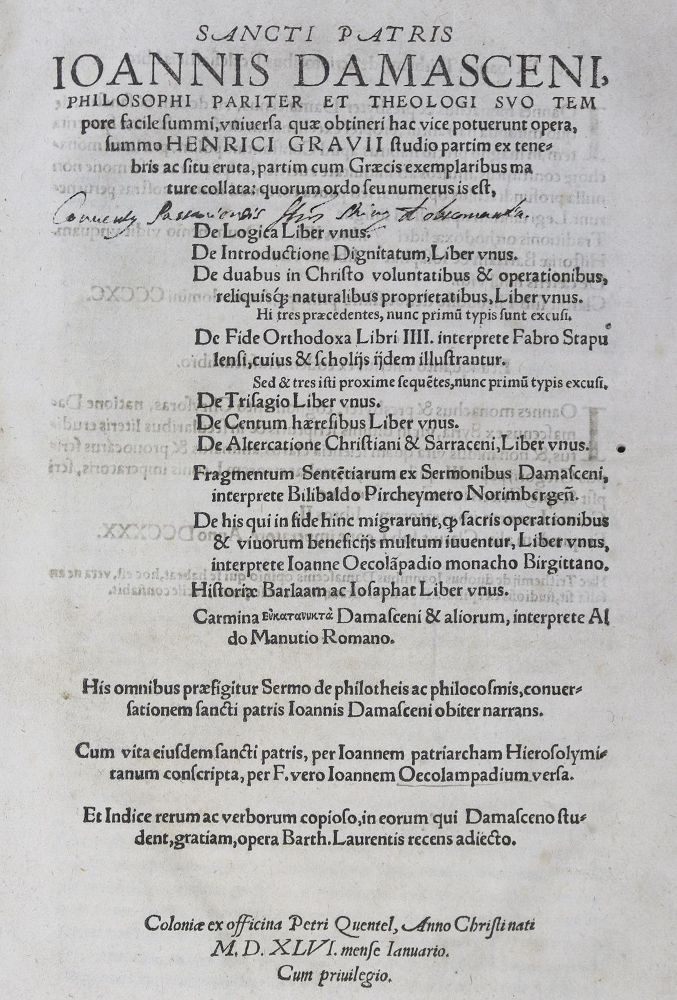 SANCTI PATRIS
IOANNIS DAMASCENI,
PHILOSOPHI PARITER ET THEOLOGI SVO TEM
pore facile ſummi, vniuerſa quæ obtineri hac vice potuerunt opera,
ſummo HENRICI GRAVII ſtudio partim ex tene-
bris ac ſitu eruta, partim cum Græcis exemplaribus ma
ture collata: quorum ordo ſeu numerus is eſt,
De Logica Liber vnus.
De Introductione Dignitatum, Liber vnus.
De duabus in Chriſto voluntatibus & operationibus,
reliquisq́; naturalibus proprietatibus, Liber vnus.
Hi tres præcedentes, nunc primū typis ſunt excuſi.
De Fide Orthodoxa Libri IIII. interprete Fabro Stapu
lenſi, cuius & ſcholijs ijdem illuſtrantur.
Sed & tres iſti proxime ſequētes, nunc primū typis excuſi.
De Triſagio Liber vnus.
De Centum hæreſibus Liber vnus.
De Altercatione Chriſtiani & Sarraceni, Liber vnus.
Fragmentum Sentētiarum ex Sermonibus Damaſceni,
interprete Bilibaldo Pircheymero Norimbergeñ.
De his qui in fide hinc migrarunt, ꝙ ſacris operationibus
& viuorum beneficijs multum iuuentur, Liber vnus,
interprete Ioanne Oecolāpadio monacho Birgittano.
Hiſtoriæ Barlaam ac Ioſaphat Liber vnus.
Carmina Εὐκατανυκτὰ Damaſceni & aliorum, interprete Al
do Manutio Romano.
His omnibus præfigitur Sermo de philotheis ac philocoſmis, conuer-
ſationem ſancti patris Ioannis Damaſceni obiter narrans.
Cum vita eiuſdem ſancti patris, per Ioannem patriarcham Hieroſolymi-
tanum conſcripta, per F. vero Ioannem Oecolampadium verſa.
Et Indice rerum ac verborum copioſo, in eorum qui Damaſceno ſtu-
dent, gratiam, opera Barth. Laurentis recens adiecto.
Coloniæ ex officina Petri Quentel, Anno Chriſti nati
M. D. XLVI. menſe Ianuario.
Cum priuilegio.